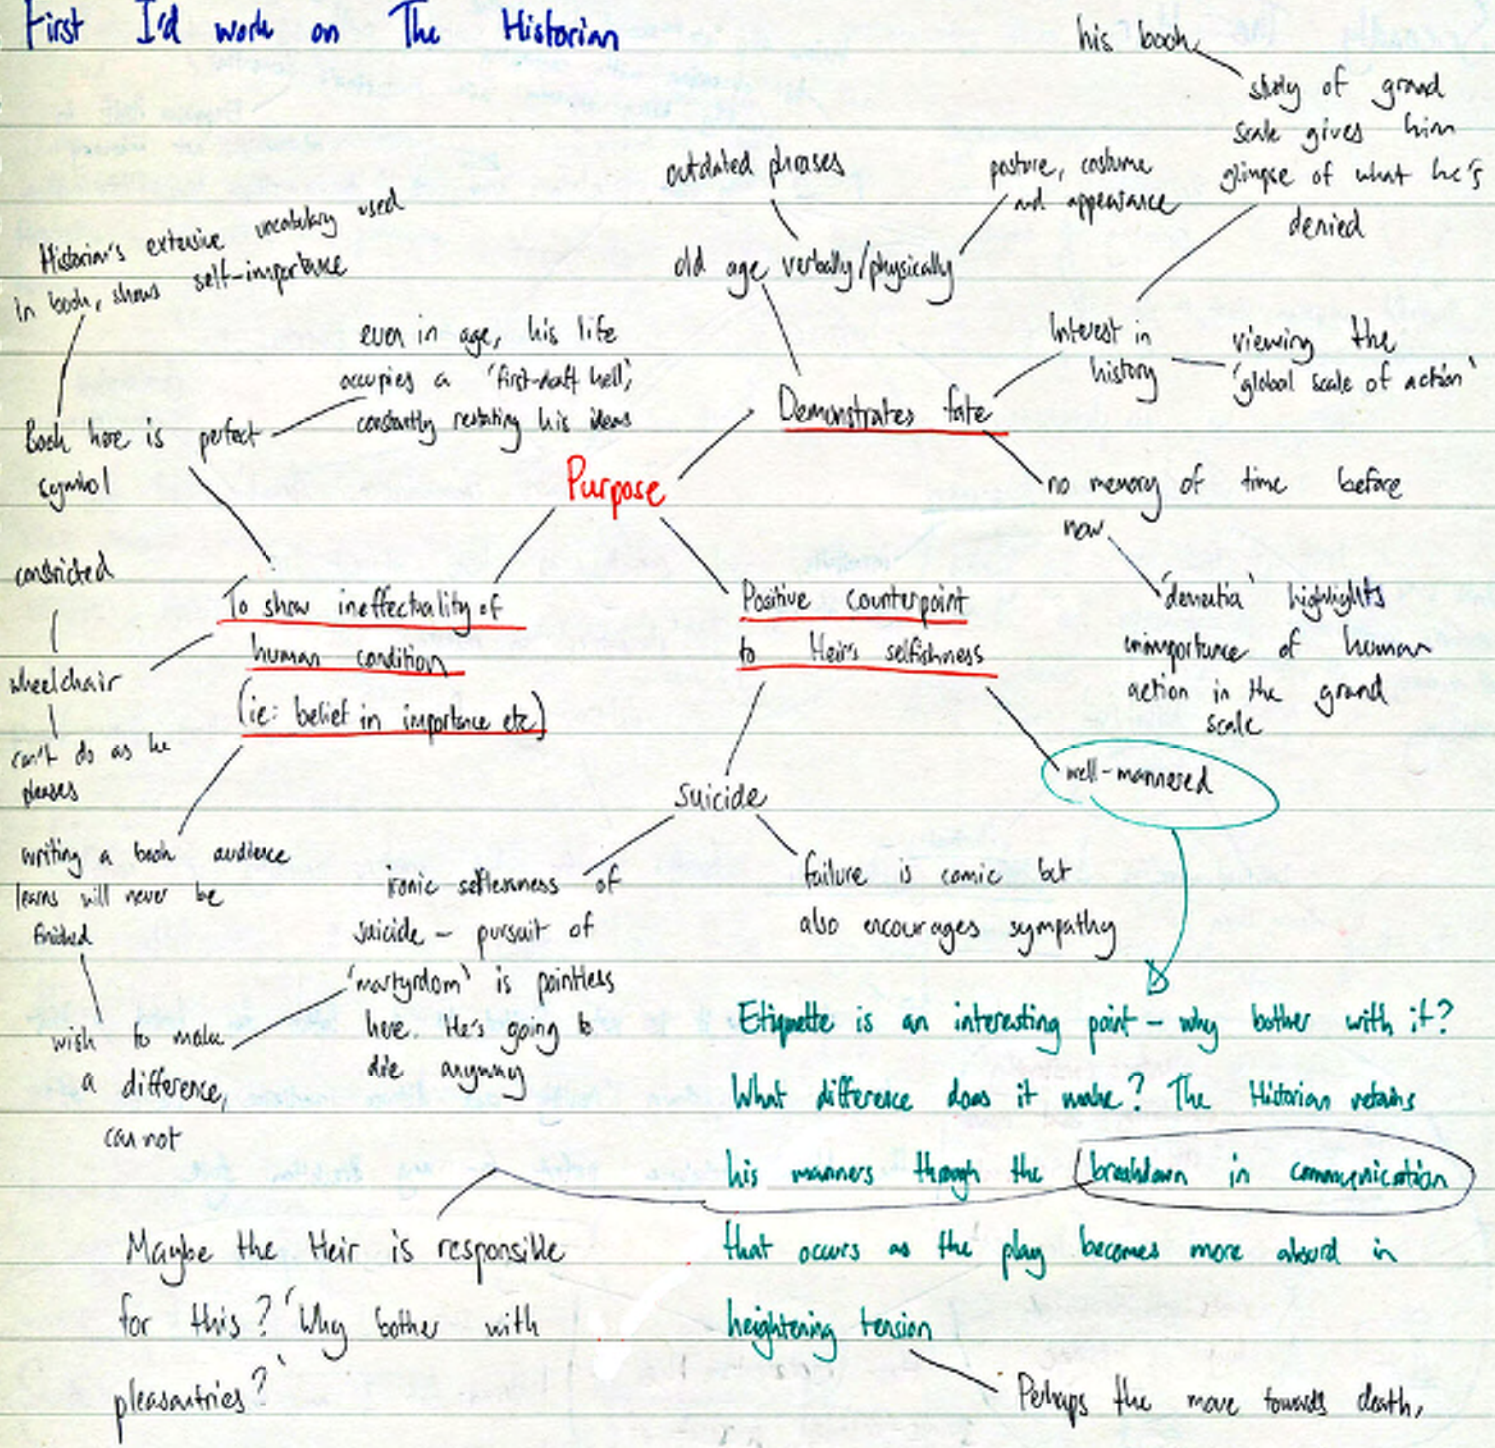 First I'd work on The Historian
his book
study of grand
scale gives him
glimpse of what he's
denied
outdated phrases
posture, costume
and appearance
old age verbally/physically
Historian's extensive vocabulary used
in book, shows self-importance
even in age, his life
occupies a 'first-draft hell',
constantly restating his ideas
Interest in
history
viewing the
'global scale of action'
Book here is perfect
symbol
Demonstrates fate
Purpose
no memory of time before
now
'dementia' highlights
unimportance of human
action in the grand
scale
constricted
wheelchair
can't do as he
pleases
To show ineffectuality of
human condition
(ie: belief in importance etc)
Positive counterpoint
to Heir's selfishness
well-mannered
Suicide
writing a book audience
learns will never be
finished
wish to make
a difference,
cannot
ironic selflessness of
suicide - pursuit of
'martyrdom' is pointless
here. He's going to
die anyway
failure is comic but
also encourages sympathy
Etiquette is an interesting point - why bother with it?
What difference does it make? The Historian retains
his manners through the breakdown in communication
that occurs as the play becomes more absurd in
heightening tension
Maybe the Heir is responsible
for this? 'Why bother with
pleasantries?'
Perhaps the move towards death,